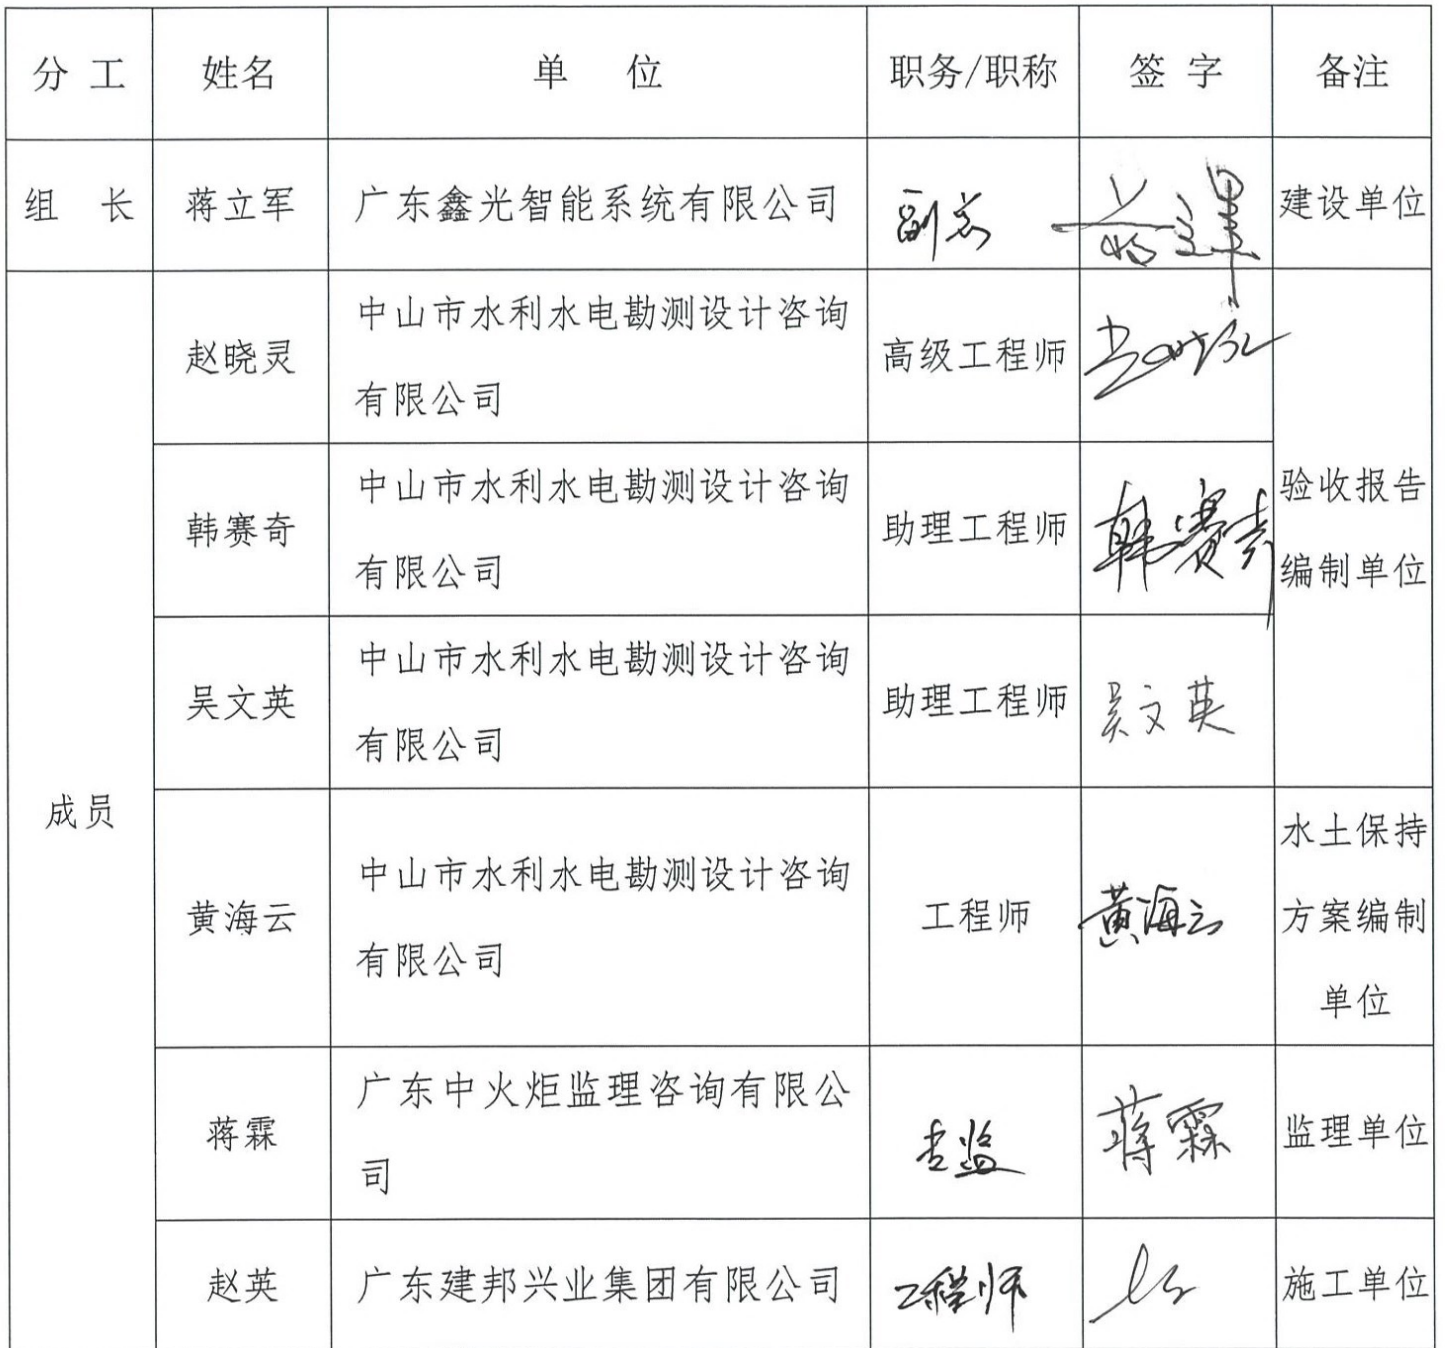 分 工 姓名 单 位 职务/职称 签 字 备注
组 长 蒋立军 广东鑫光智能系统有限公司 副总 蒋立军 建设单位
成员
赵晓灵
中山市水利水电勘测设计咨询
有限公司
高级工程师
韩赛奇
中山市水利水电勘测设计咨询
有限公司
助理工程师
韩赛奇
验收报告
编制单位
吴文英
中山市水利水电勘测设计咨询
有限公司
助理工程师
吴文英
黄海云
中山市水利水电勘测设计咨询
有限公司
工程师
黄海云
水土保持
方案编制
单位
蒋霖
广东中火炬监理咨询有限公
司
专监
蒋霖
监理单位
赵英 广东建邦兴业集团有限公司 工程师 施工单位